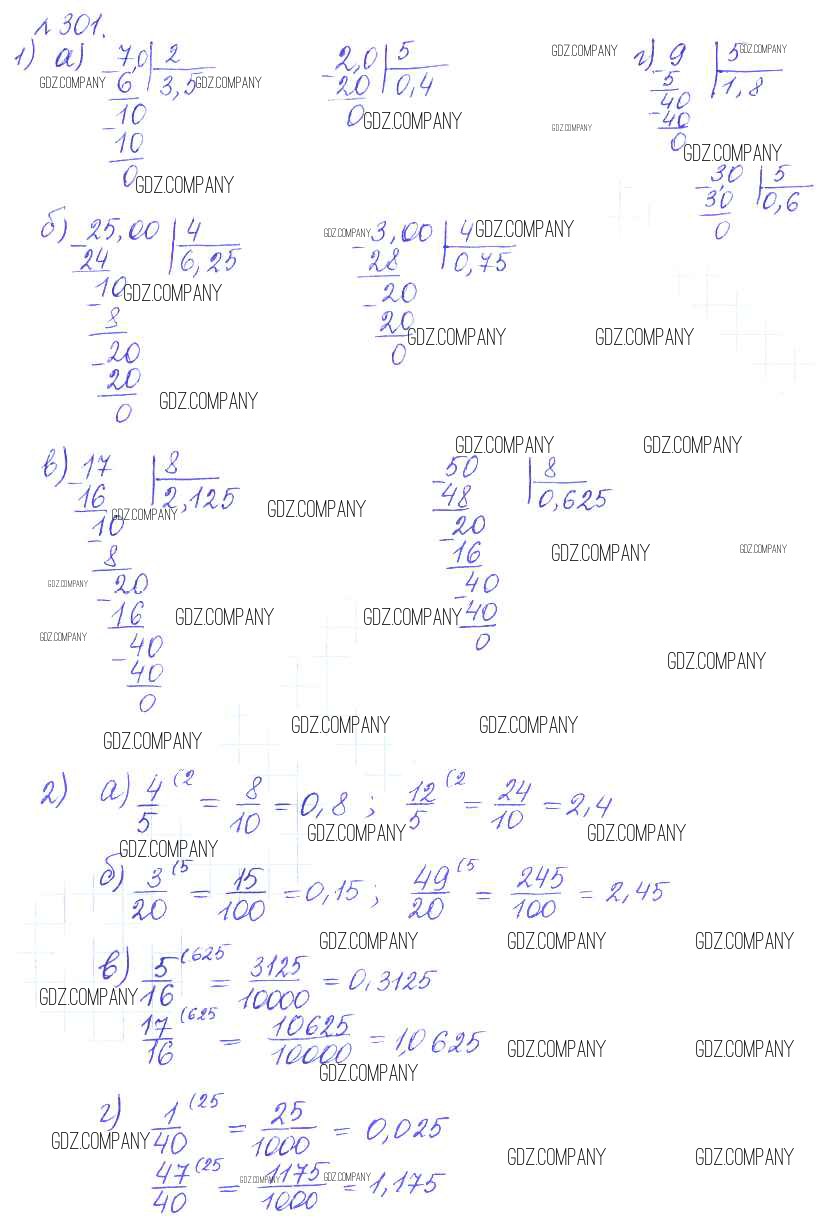 № 301.
1) а) 7,0 | 2    2,0 | 5    г) 9 | 5
GDZ.COMPANY GDZ.COMPANY
6 3,5    20 0,4    5 1,8
GDZ.COMPANY GDZ.COMPANY
10    0    40
GDZ.COMPANY GDZ.COMPANY
10    40
0    0
GDZ.COMPANY GDZ.COMPANY
3,0 | 5
30 0,6
0
б) 25,00 | 4    3,00 | 4
GDZ.COMPANY GDZ.COMPANY
24 6,25    28 0,75
10    20
GDZ.COMPANY
8    20
GDZ.COMPANY GDZ.COMPANY
20    0
20
GDZ.COMPANY
0
GDZ.COMPANY GDZ.COMPANY
в) 17 | 8    50 | 8
16 2,125    48 0,625
GDZ.COMPANY GDZ.COMPANY
10    20
8    16
GDZ.COMPANY GDZ.COMPANY
20    40
GDZ.COMPANY
16    40
GDZ.COMPANY GDZ.COMPANY
GDZ.COMPANY
40    0
GDZ.COMPANY
40
0
GDZ.COMPANY GDZ.COMPANY GDZ.COMPANY
2) а) 4/5 (2 = 8/10 = 0,8 ; 12/5 (2 = 24/10 = 2,4
GDZ.COMPANY GDZ.COMPANY GDZ.COMPANY
б) 3/20 (5 = 15/100 = 0,15 ; 49/20 (5 = 245/100 = 2,45
GDZ.COMPANY GDZ.COMPANY GDZ.COMPANY
в) 5/16 (625 = 3125/10000 = 0,3125
GDZ.COMPANY
17/16 (625 = 10625/10000 = 1,0625
GDZ.COMPANY GDZ.COMPANY
GDZ.COMPANY
г) 1/40 (25 = 25/1000 = 0,025
GDZ.COMPANY GDZ.COMPANY GDZ.COMPANY
47/40 (25 = 1175/1000 = 1,175
GDZ.COMPANY GDZ.COMPANY